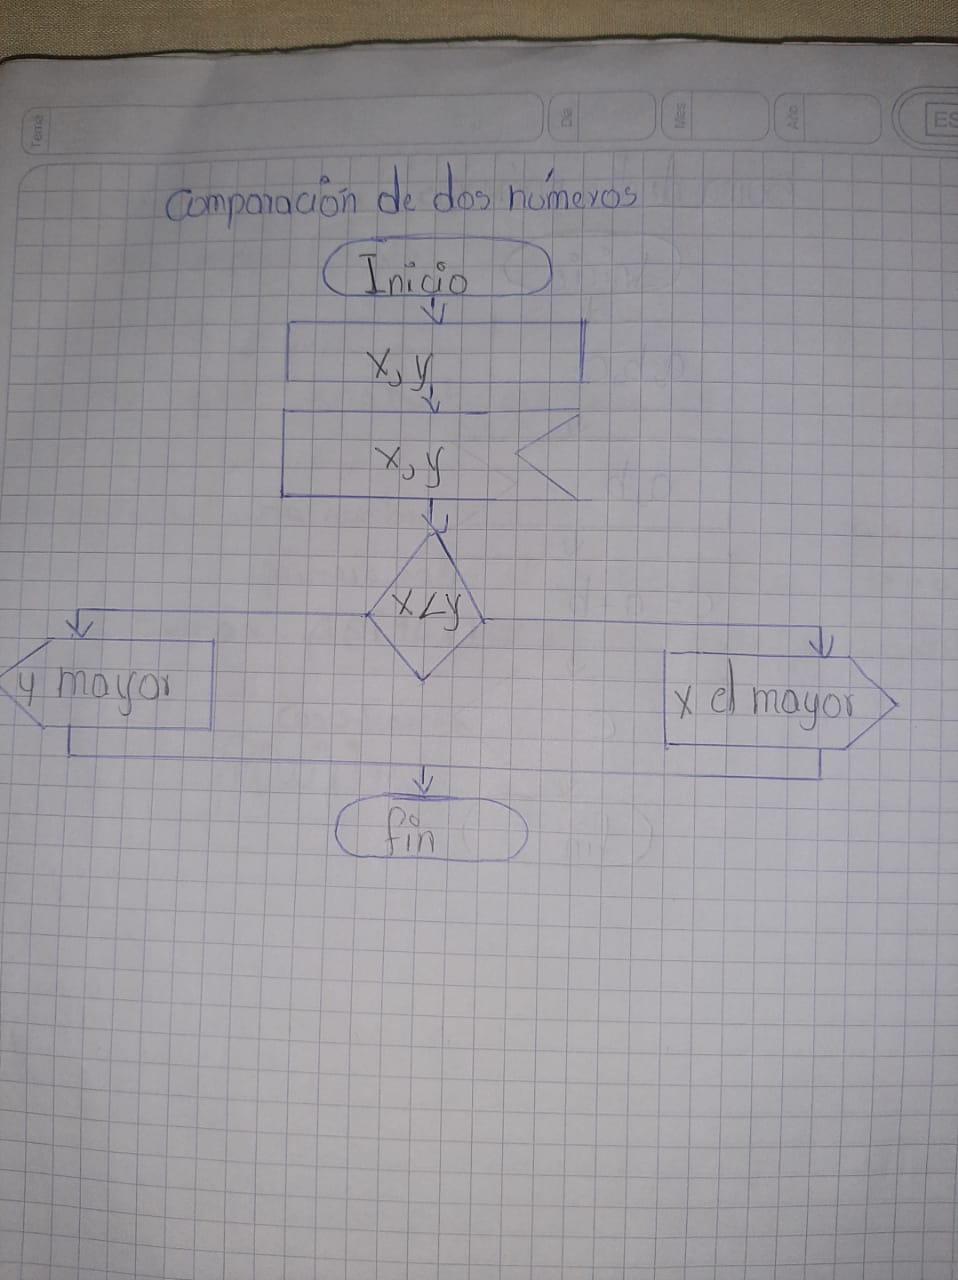 Tema Dia Mes Año ES
Comparación de dos números
Inicio
x, y
x, y
x<y
y mayor
x el mayor
fin